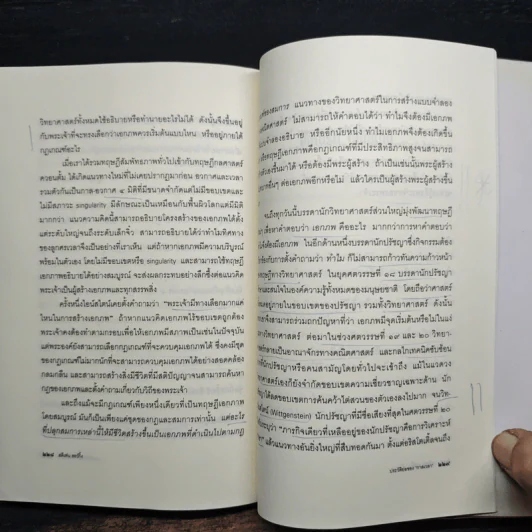 วิทยาศาสตร์ทั้งหมดใช้อธิบายหรือทำนายอะไรไม่ได้ ดังนั้นจึงขึ้นอยู่
กับพระเจ้าที่จะทรงเลือกว่าเอกภพควรเริ่มต้นแบบไหน หรืออยู่ภายใต้
กฎเกณฑ์อะไร
เมื่อเราได้รวมทฤษฎีสัมพัทธภาพทั่วไปเข้ากับทฤษฎีกลศาสตร์
ควอนตั้ม ได้เกิดแนวทางใหม่ที่ไม่เคยปรากฏมาก่อน อวกาศและเวลา
รวมตัวกันเป็นกาล-อวกาศ ๔ มิติที่มีขนาดจำกัดแต่ไม่มีขอบเขตและ
ไม่มีสภาวะ singularity มีลักษณะเป็นเหมือนกับพื้นผิวโลกแต่มีมิติ
มากกว่า แนวความคิดนี้สามารถอธิบายโครงสร้างของเอกภพได้ตั้ง
แต่ระดับใหญ่จนถึงระดับเล็กจิ๋ว สามารถอธิบายได้ว่าทำไมทิศทาง
ของลูกศรเวลาจึงเป็นอย่างที่เราเห็น แต่ถ้าหากเอกภพมีความบริบูรณ์
พร้อมในตัวเอง โดยไม่มีขอบเขตหรือ singularity และสามารถใช้ทฤษฎี
เอกภพอธิบายได้อย่างสมบูรณ์ จะส่งผลกระทบอย่างลึกซึ้งต่อแนวคิด
พระเจ้าเป็นผู้สร้างเอกภพและทุกสรรพสิ่ง
ครั้งหนึ่งไอน์สไตน์เคยตั้งคำถามว่า "พระเจ้ามีทางเลือกมากแค่
ไหนในการสร้างเอกภพ" ถ้าหากแนวคิดเอกภพไร้ขอบเขตถูกต้อง
พระเจ้าคงต้องทำตามกรอบเพื่อให้เอกภพมีสภาพเป็นเช่นในปัจจุบัน
แต่พระองค์ยังสามารถเลือกกฎเกณฑ์ที่จะควบคุมเอกภพได้ ซึ่งคงมีชุด
ของกฎเกณฑ์ไม่มากนักที่จะสามารถควบคุมเอกภพได้อย่างสอดคล้อง
กลมกลืน และสามารถสร้างสิ่งมีชีวิตที่มีสติปัญญาจนสามารถค้นหา
กฎของเอกภพและตั้งคำถามเกี่ยวกับวิถีของพระเจ้า
และถึงแม้จะมีกฎเกณฑ์เพียงหนึ่งเดียวที่เป็นทฤษฎีเอกภพ
โดยสมบูรณ์ มันก็เป็นเพียงแค่ชุดของกฎและสมการเท่านั้น แต่อะไร
ที่ปลุกสมการเหล่านี้ให้มีชีวิตสร้างขึ้นเป็นเอกภพที่ดำเนินไปตามกฎ
๒๒๘
สมการ แนวทางของวิทยาศาสตร์ในการสร้างแบบจำลอง
คณิตศาสตร์ ไม่สามารถให้คำตอบได้ว่า ทำไมจึงต้องมีเอกภพ
อธิบาย หรืออีกนัยหนึ่ง ทำไมเอกภพจึงต้องเกิดขึ้น
ทฤษฎีเอกภพคือกฎเกณฑ์ที่มีประสิทธิภาพสูงจนสามารถ
ขึ้นมาได้ หรือต้องมีพระผู้สร้าง ถ้าเป็นเช่นนั้นพระผู้สร้าง
อื่นๆ ต่อเอกภพอีกหรือไม่ แล้วใครเป็นผู้สร้างพระผู้สร้างขึ้น
จนถึงทุกวันนี้บรรดานักวิทยาศาสตร์ส่วนใหญ่มุ่งพัฒนาทฤษฎี
เพื่อหาคำตอบว่า เอกภพ คืออะไร มากกว่าการหาคำตอบว่า
ต้องมีเอกภพ ในอีกด้านหนึ่งบรรดานักปรัชญาซึ่งกิจกรรมต้อง
กับการตั้งคำถามว่า ทำไม ก็ไม่สามารถก้าวทันความก้าวหน้า
ทฤษฎีทางวิทยาศาสตร์ ในยุคศตวรรษที่ ๑๘ บรรดานักปรัชญา
สนใจในองค์ความรู้ทั้งหมดของมนุษยชาติ โดยถือว่าศาสตร์
อยู่ภายในขอบเขตของปรัชญา รวมทั้งวิทยาศาสตร์ ดังนั้น
จึงสามารถร่วมถกปัญหาที่ว่า เอกภพมีจุดเริ่มต้นหรือไม่ในแง่
วิทยาศาสตร์ ต่อมาในช่วงศตวรรษที่ ๑๙ และ ๒๐ วิทยา-
กลายเป็นอาณาจักรทางคณิตศาสตร์ และกลไกเทคนิคซับซ้อน
นักปรัชญาหรือคนสามัญโดยทั่วไปจะเข้าถึง แม้ในแวดวง
ศาสตร์เองก็ยังจำกัดขอบเขตความเชี่ยวชาญเฉพาะด้าน นัก
ได้ลดขอบเขตการค้นคว้าไต่สวนของตัวเองลงไปมาก จนวิท-
(Wittgenstein) นักปรัชญาที่มีชื่อเสียงที่สุดในศตวรรษที่ ๒๐
ว่า "ภารกิจเดียวที่เหลืออยู่ของนักปรัชญาคือการวิเคราะห์
แล้วแนวทางอันยิ่งใหญ่ที่สืบทอดกันมา ตั้งแต่อริสโตเติ้ลจนถึง
ประวัติย่อของ "กาลเวลา" ๒๒๙